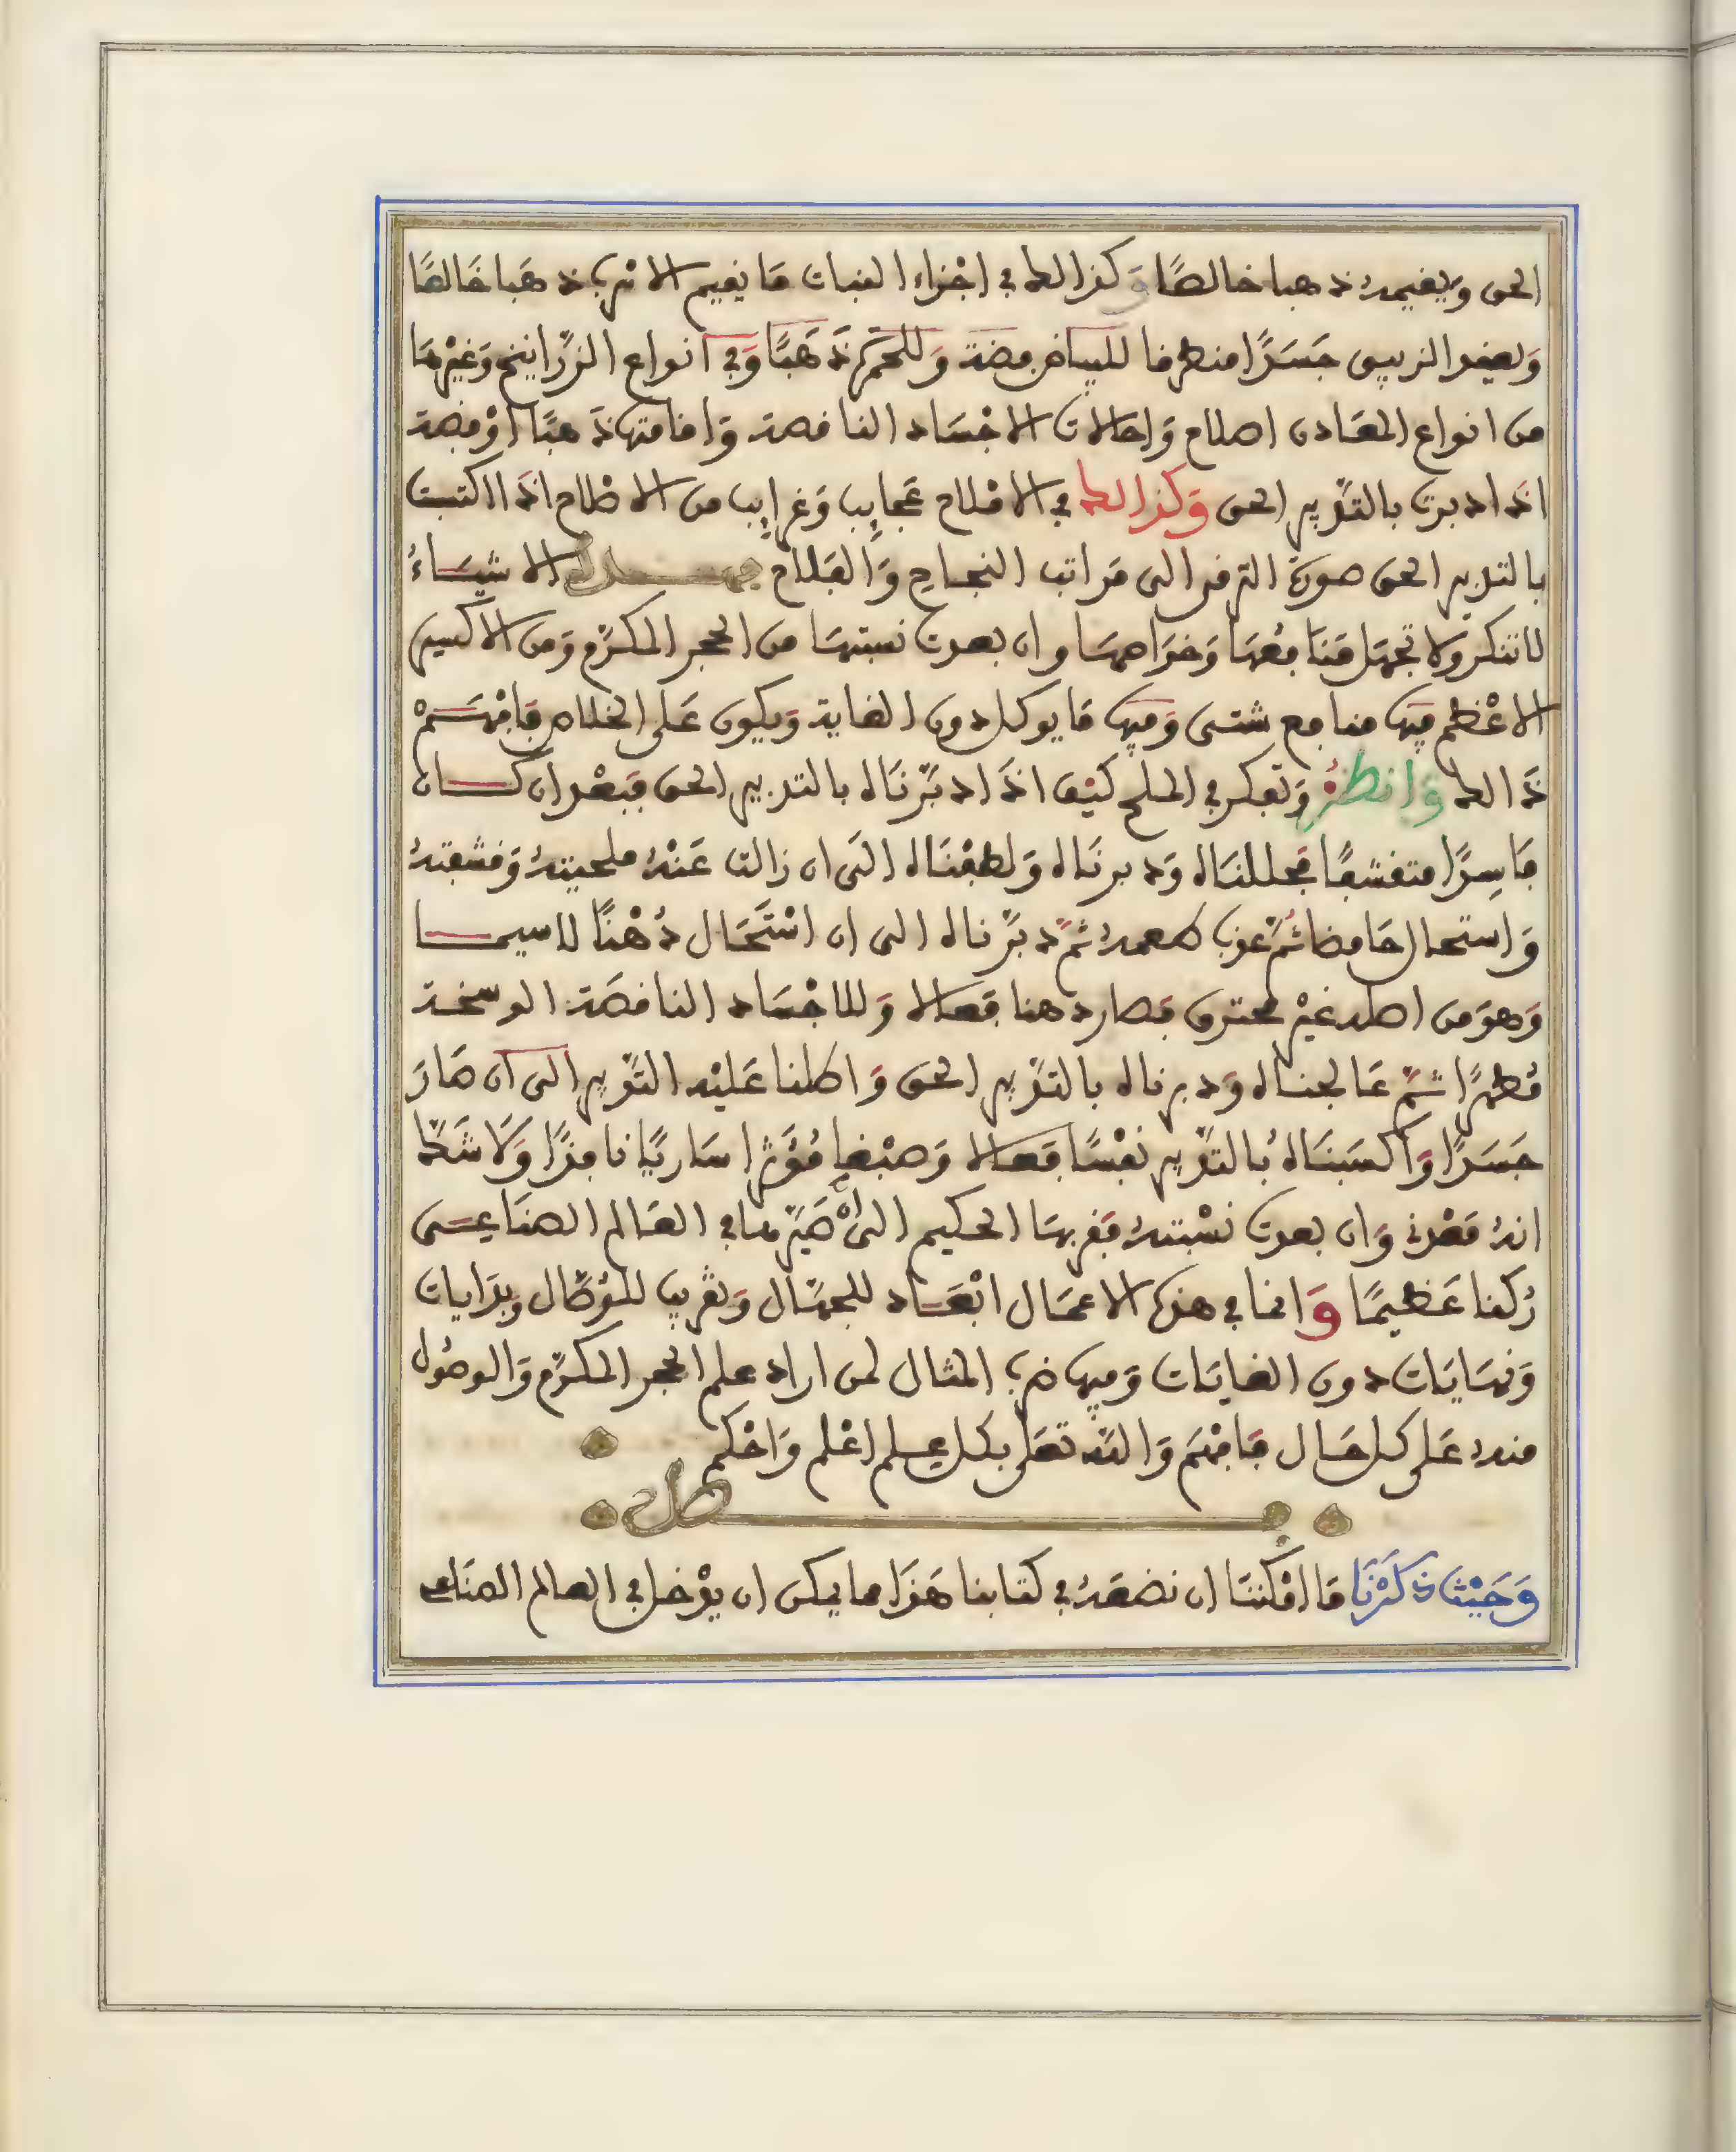 الحق ويقيمه ذهبا خالصًا وكذالك في اجْزاء النبات مَا يقيم الاسرب ذهَبا خَالصًا
وَيعقد الزيبق جَسَدًا منطرقا للبياض فضة وَللحمرة ذَهَبًا وَفي انواع الزّرَانيخ وَغيْرهَا
من انواع المعَادن اصلاح وَاحَالات الاجْسَاد الناقصة وَاقامتها ذَهبًا اوْ فضة
اذَا دبرت بالتدْبير الحق وَكذالك في الامْلاح عَجايِب وَغرايِب من الاصْلاح اذَا اكتست
بالتدبير الحق صورة الترقي الى مَراتب النجاحِ وَالفَلاح فهذه الاشيَاءُ
لا تنكر ولا تجهَل مَنَافعُهَا وَخوَاصهَا وان بعدت نسبتهَا من الحجر المكرّم وَمن الاكسير
الاعْظم فِيهَا منافع شتى وَفيها مَا يوكل دون الغاية وَيكون عَلى الخلاص فَافْهَمْ
ذَالك وَانظرْ وَتفكر في الملح كيْف اذَا دبّرنَاه بالتدبير الحق فبَعْد ان كَان
فَاسِدًا متقشفًا فحللنَاه وَدبرنَاه وَلطفْنَاه الَى ان زالت عَنْهُ ملحيتهُ وَقشفتهُ
وَاستحال حَامضا ثُمّ عذب طعمهُ ثمّ دبّرناه الى ان اسْتَحَال دُهْنًا لاسيما
وَهوَ من اصله غيْر محترق فصار دهنا فعالا وَللاجْسَاد الناقصَة الوسخة
مُطهرًا ثمّ عَالجناه وَدبرناه بالتدْبير الحق وَاطلنا عَليْه التدْبير الى ان صَارَ
جَسَدًا وَاكسَبنَاهُ بالتدْبير نفْسًا فعَالا وَصبْغا مُؤثرًا سَاريًا نافذًا وَلَا شَكّ
انهُ مَعْدني وَان بعدت نسْبتهُ فقربهَا الحكيم الىَ انْ صَيّرهَا في العَالم الصنَاعِي
رُكنا عَظيمًا وَانما في هذه الاعمَال ابْعَاد للجهّال وَتقْريب للوُصّال وَبدَايات
وَنهَايَات دون الغايَات وَفيها ضرب المثال لمن اراد علم الحجر المكرّم وَالوصُول
منه عَلى كل حَال فَافهَم وَاللّه تعَلى بكل علم اعْلم وَاحْكم
فصل
وَحَيْث ذكَرْنَا مَا امْكننَا ان نضعَهُ في كتابنا هَذَا مما يمكن ان يدْخل في العالم الصنَاعي